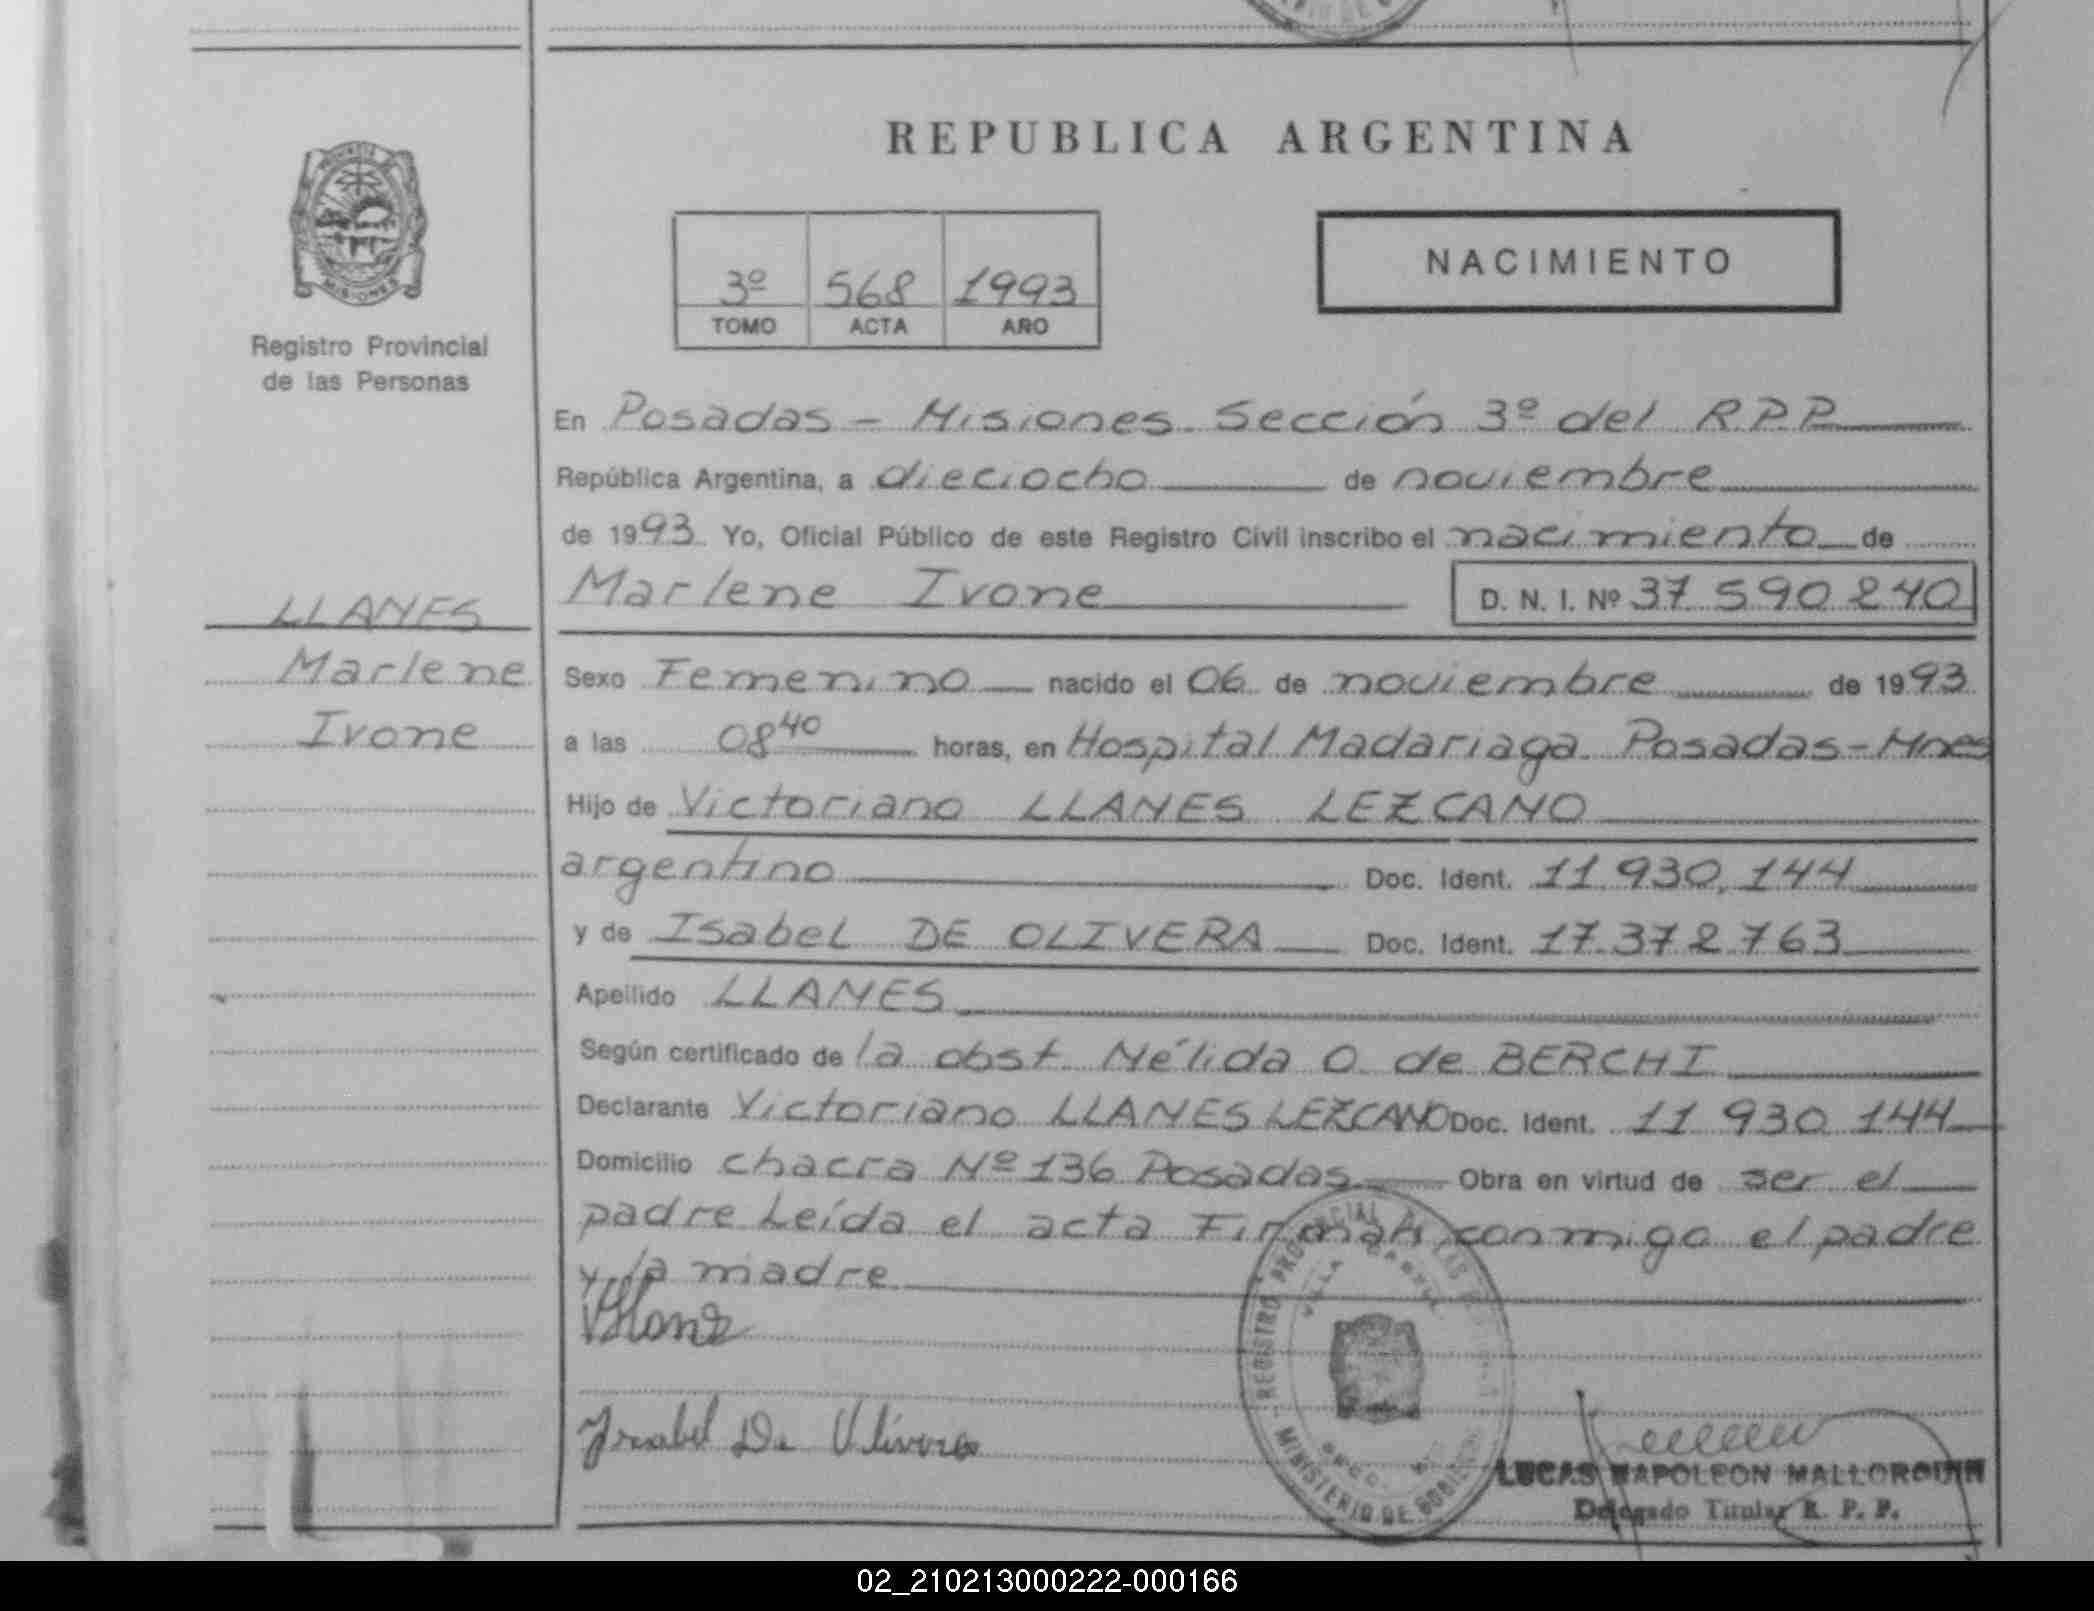 REPUBLICA ARGENTINA
MISIONES
Registro Provincial
de las Personas
NACIMIENTO
3º 568 1993
TOMO ACTA AÑO
En Posadas - Misiones. Sección 3º del R.P.P.
República Argentina, a dieciocho de noviembre
de 1993 Yo, Oficial Público de este Registro Civil inscribo el nacimiento de
Marlene Ivone D. N. I. Nº 37 590 240
LLANES
Marlene
Ivone
Sexo Femenino nacido el 06 de noviembre de 1993
a las 08 40 horas, en Hospital Madariaga Posadas-Mnes
Hijo de Victoriano LLANES LEZCANO
argentino Doc. Ident. 11 930, 144
y de Isabel DE OLIVERA Doc. Ident. 17.372 763
Apellido LLANES
Según certificado de la obst. Nélida O. de BERCHI
Declarante Victoriano LLANES LEZCANO Doc. Ident. 11 930 144
Domicilio chacra Nº 136 Posadas Obra en virtud de ser el
padre Leída el acta Firman conmigo el padre
y la madre
Isabel De Olivera
MINISTERIO DE GOBIERNO
LUCAS NAPOLEON MALLORQUIN
Delegado Titular R. P. P.
02_210213000222-000166